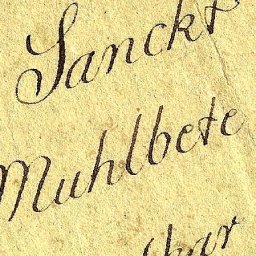 Sanckt
Muhlbete